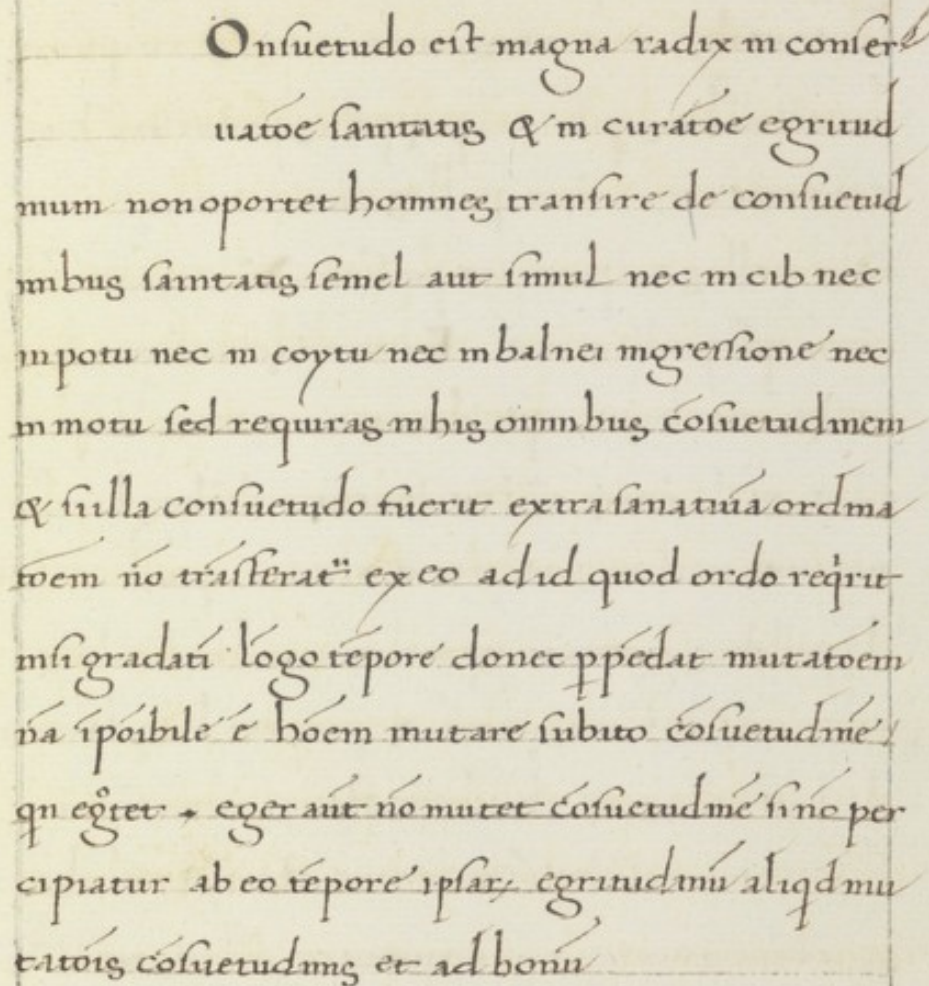 Onsuetudo est magna radix in conser
uatōe sanitatis & in curatōe egritud
inum non oportet homines transire de consuetud
inibus sanitatis semel aut simul nec in cib nec
in potu nec in coytu nec in balnei ingressione nec
in motu sed requiras in his omnibus cōsuetudinem
& si illa consuetudo fuerit extra sanatiua ordina
tōem nō trāsferat ex eo ad id quod ordo reqrit
nisi gradatī lōgo tēpore donec ppēdat mutatōem
nā īpoibile ē hōem mutare subito cōsuetudinē
qn egtet. eger aūt nō mutet cōsuetudinē sine per
cipiatur ab eo tēpore ipsar egritudinū aliqd mu
tatōis cōsuetudinis et ad bonū